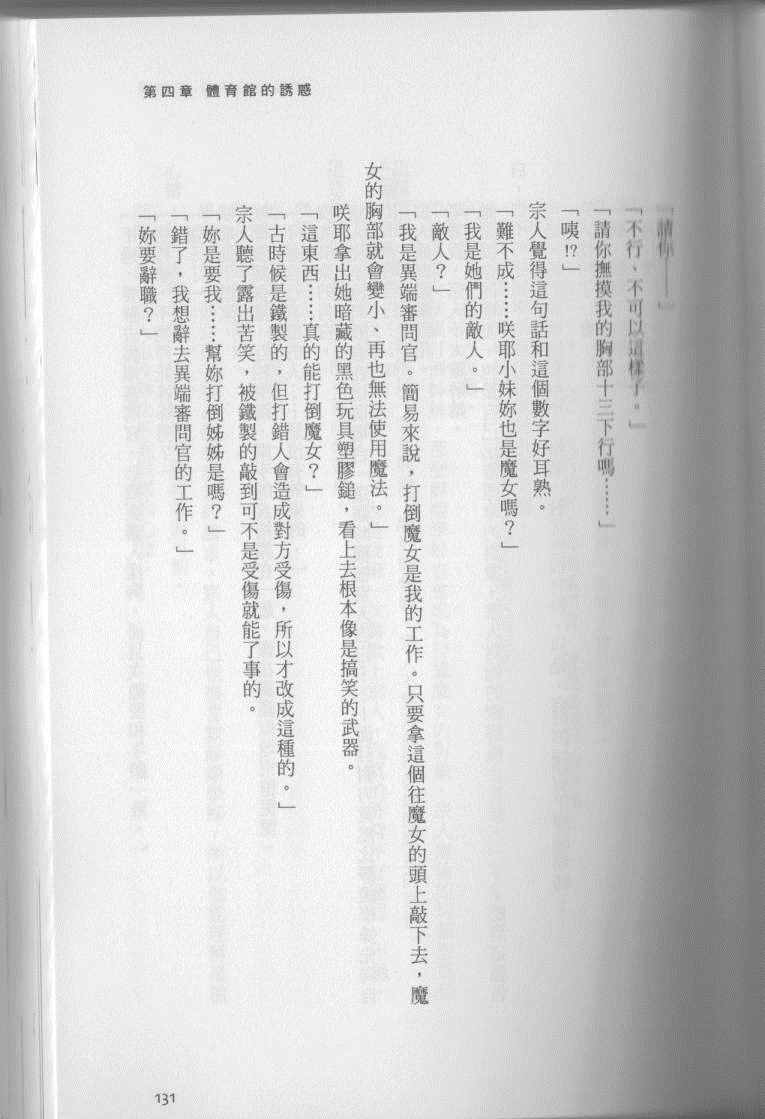 第四章 體育館的誘惑
「請你——」
「不行、不可以這樣子。」
「請你撫摸我的胸部十三下行嗎……」
「咦!?」
宗人覺得這句話和這個數字好耳熟。
「難不成……咲耶小妹妳也是魔女嗎？」
「我是她們的敵人。」
「敵人？」
「我是異端審問官。簡易來說，打倒魔女是我的工作。只要拿這個往魔女的頭上敲下去，魔
女的胸部就會變小、再也無法使用魔法。」
咲耶拿出她暗藏的黑色玩具塑膠鎚，看上去根本像是搞笑的武器。
「這東西……真的能打倒魔女？」
「古時候是鐵製的，但打錯人會造成對方受傷，所以才改成這種的。」
宗人聽了露出苦笑，被鐵製的敲到可不是受傷就能了事的。
「妳是要我……幫妳打倒姊姊是嗎？」
「錯了，我想辭去異端審問官的工作。」
「妳要辭職？」
131